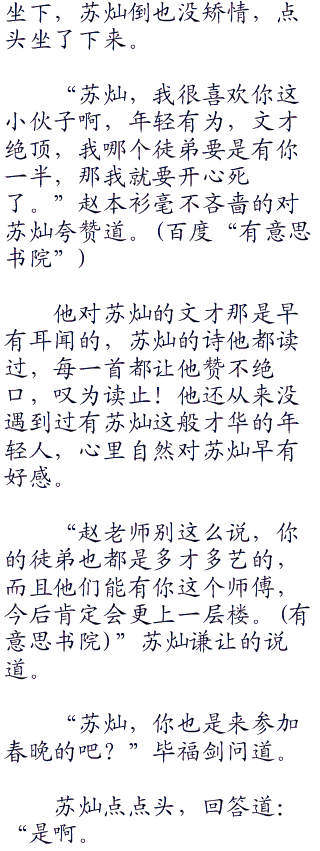 坐下，苏灿倒也没矫情，点
头坐了下来。
“苏灿，我很喜欢你这
小伙子啊，年轻有为，文才
绝顶，我哪个徒弟要是有你
一半，那我就要开心死
了。”赵本衫毫不吝啬的对
苏灿夸赞道。(百度“有意思
书院”)
他对苏灿的文才那是早
有耳闻的，苏灿的诗他都读
过，每一首都让他赞不绝
口，叹为读止！他还从来没
遇到过有苏灿这般才华的年
轻人，心里自然对苏灿早有
好感。
“赵老师别这么说，你
的徒弟也都是多才多艺的，
而且他们能有你这个师傅，
今后肯定会更上一层楼。(有
意思书院)”苏灿谦让的说
道。
“苏灿，你也是来参加
春晚的吧？”毕福剑问道。
苏灿点点头，回答道：
“是啊。